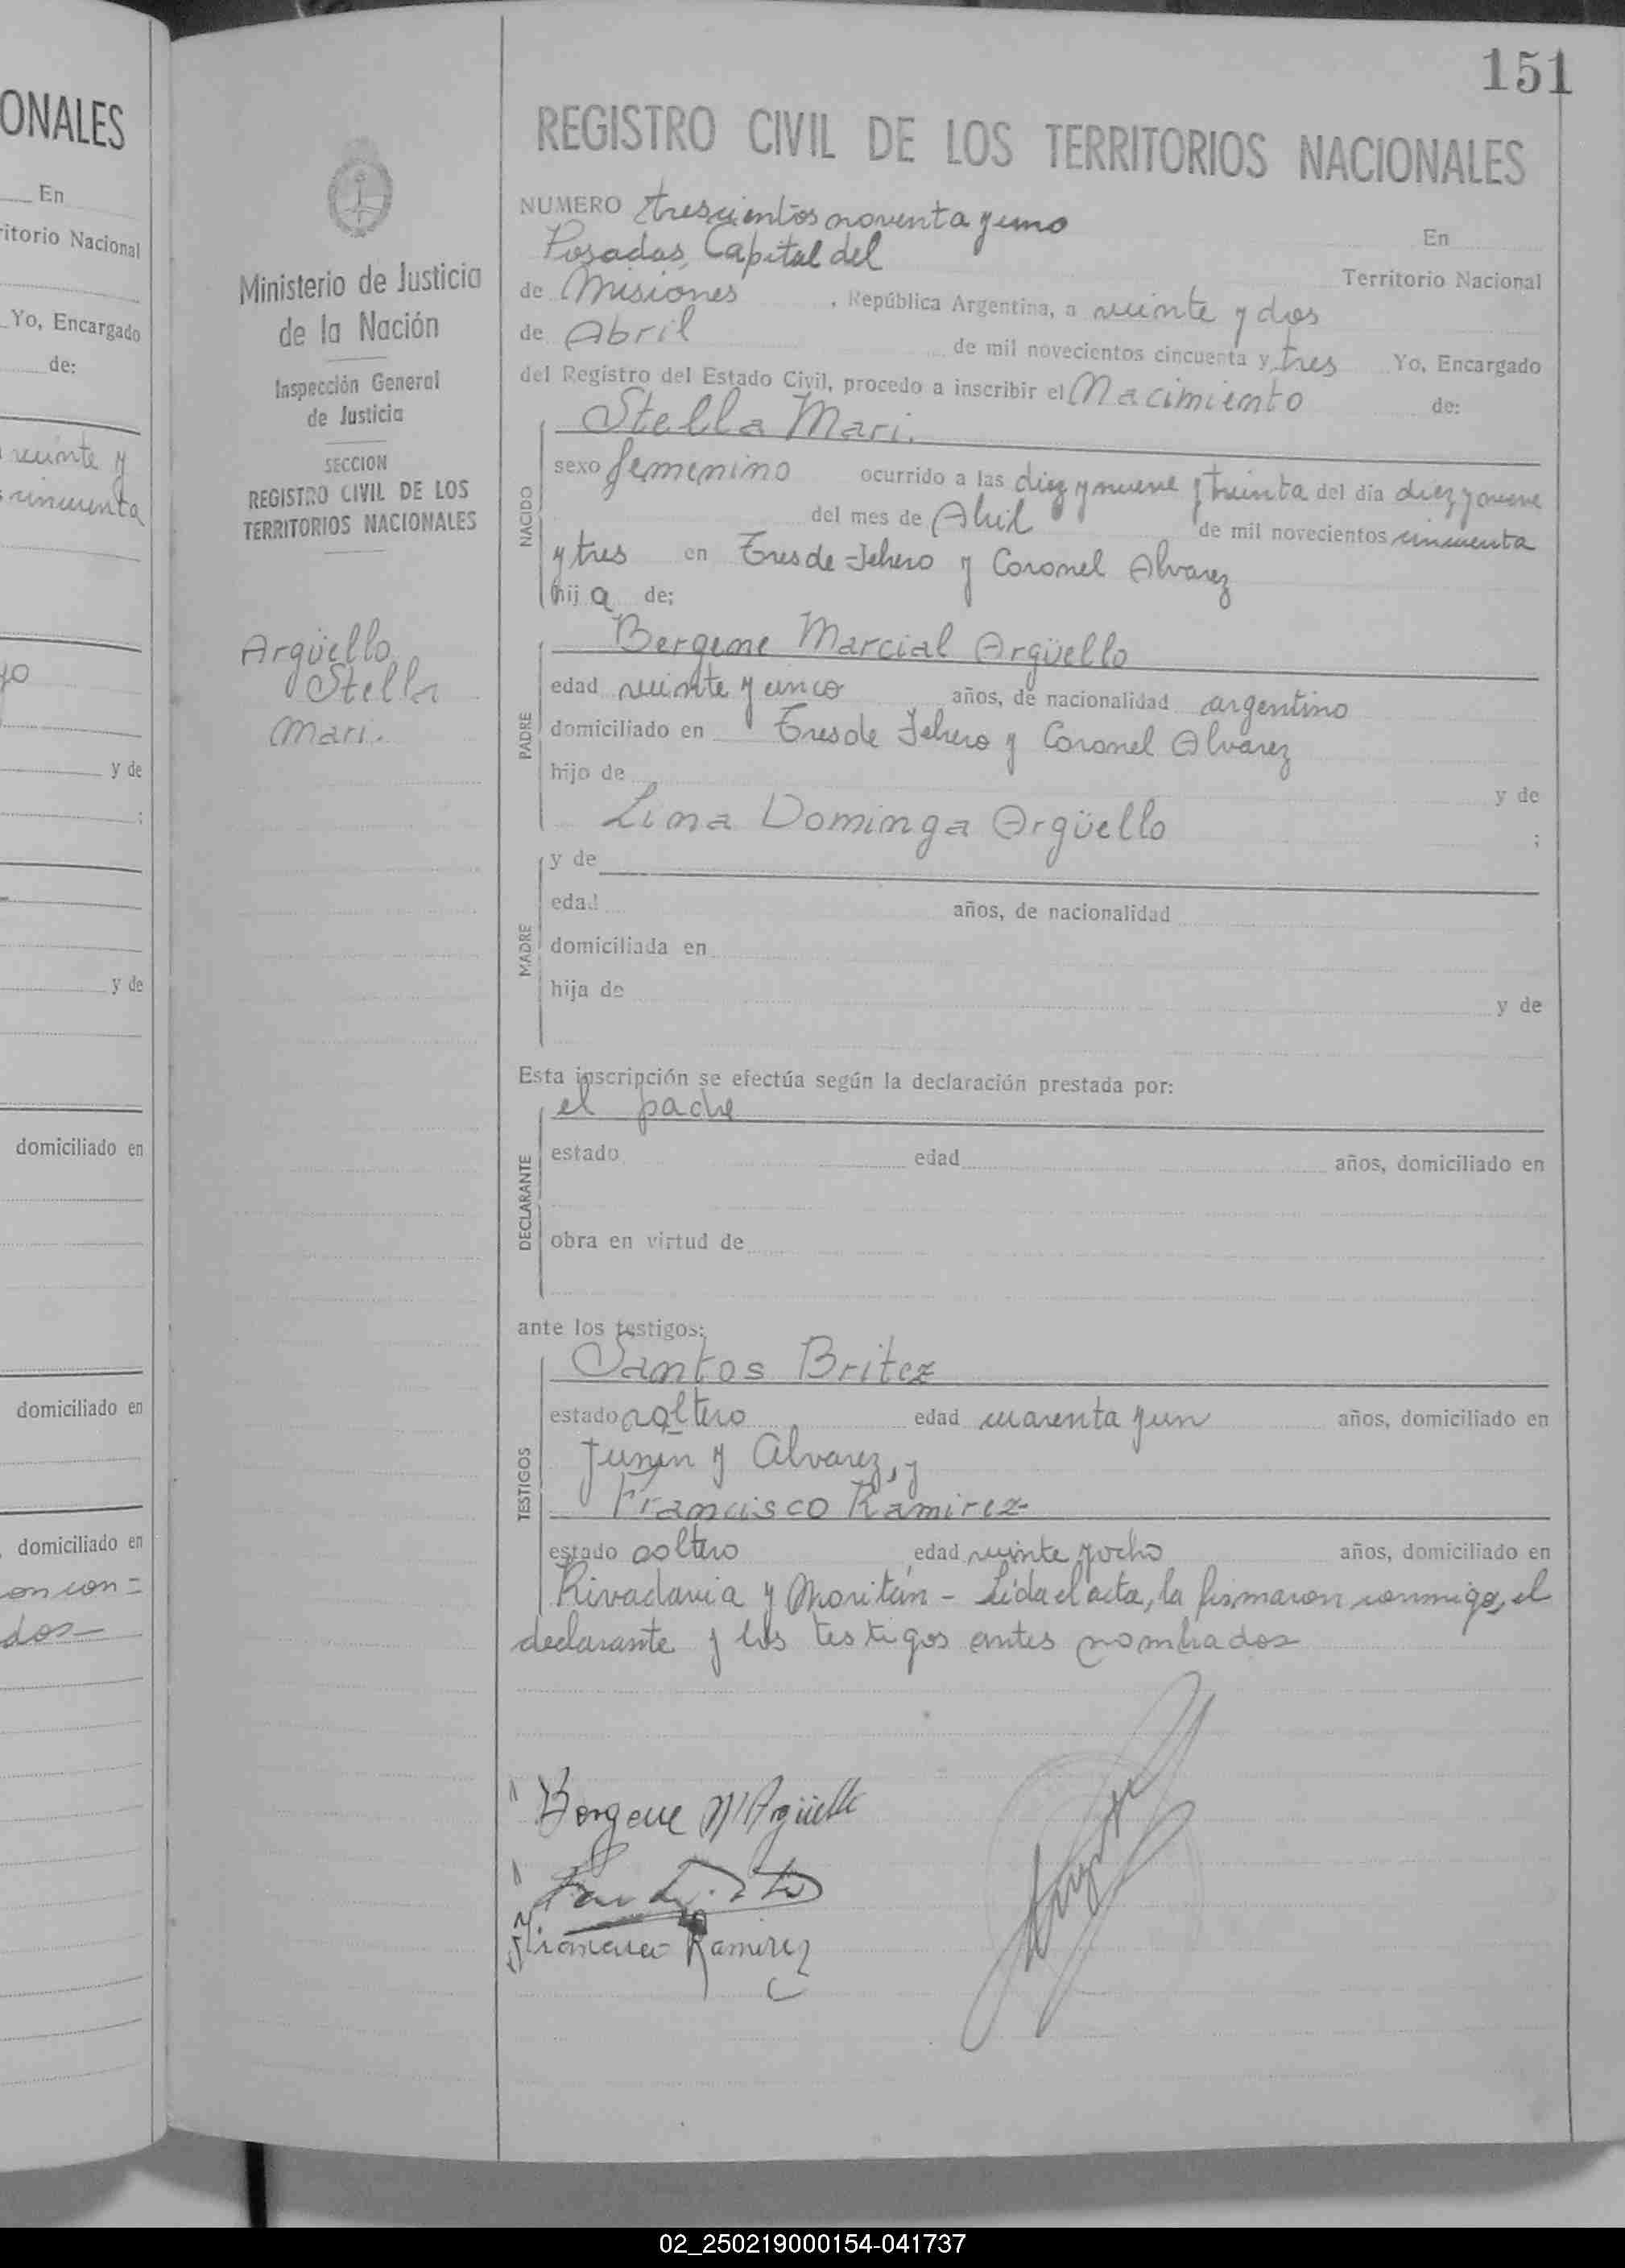 151
ONALES
En
ritorio Nacional
Yo, Encargado
de:
veinte y
cincuenta
yo
y de
:
y de
domiciliado en
domiciliado en
domiciliado en
on con=
dos
Ministerio de Justicia
de la Nación
Inspección General
de Justicia
SECCION
REGISTRO CIVIL DE LOS
TERRITORIOS NACIONALES
Argüello
Stella
Mari.
REGISTRO CIVIL DE LOS TERRITORIOS NACIONALES
NUMERO trescientos noventa y uno En
Posadas, Capital del Territorio Nacional
de Misiones, República Argentina, a veinte y dos
de Abril de mil novecientos cincuenta y tres Yo, Encargado
del Registro del Estado Civil, procedo a inscribir el Nacimiento de:
NACIDO
Stella Mari.
sexo femenino ocurrido a las diez y nueve y treinta del día diez y nueve
del mes de Abril de mil novecientos cincuenta
y tres en Tres de Febrero y Coronel Alvarez
hij a de;
PADRE
Bergene Marcial Argüello
edad veinte y cinco años, de nacionalidad argentino
domiciliado en Tres de Febrero y Coronel Alvarez
hijo de y de
Lina Dominga Argüello ;
MADRE
y de
edad años, de nacionalidad
domiciliada en
hija de y de
Esta inscripción se efectúa según la declaración prestada por:
DECLARANTE
el padre
estado edad años, domiciliado en
obra en virtud de
ante los testigos:
TESTIGOS
Santos Britez
estado soltero edad cuarenta y un años, domiciliado en
Junín y Alvarez, y
Francisco Ramirez
estado soltero edad veinte y ocho años, domiciliado en
Rivadavia y Moritán - Leída el acta, la firmaron conmigo, el
declarante y los testigos antes nombrados
Bergene M Argüello
Francisco Ramirez
02_250219000154-041737